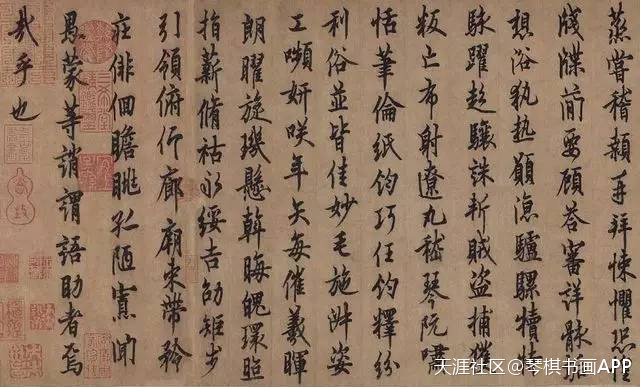 蒸嘗稽顙再拜悚懼恐惶
牋牒簡要顧答審詳骸垢
想浴執熱願涼驢騾犢特
駭躍超驤誅斬賊盜捕獲
叛亡布射遼丸嵇琴阮嘯
恬筆倫紙鈞巧任釣釋紛
利俗並皆佳妙毛施淑姿
工嚬妍咲年矢每催羲暉
朗曜旋璣懸斡晦魄環照
指薪脩祜永綏吉劭矩步
引領俯仰廊廟束帶矜
莊俳佪瞻眺孤陋寡聞
愚蒙等誚謂語助者焉
哉乎也
天涯社区@琴棋书画APP